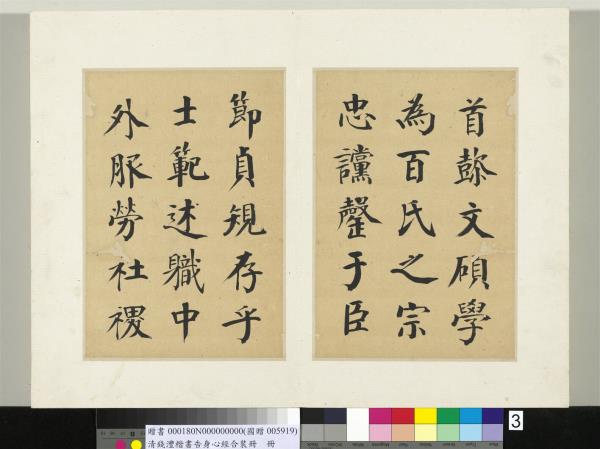 首懿文碩學
為百氏之宗
忠讜罄于臣
節貞規存乎
士範述職中
外服勞社稷
贈書 000180N000000000(國贈 005919)
清錢灃楷書告身心經合裝冊 冊
3